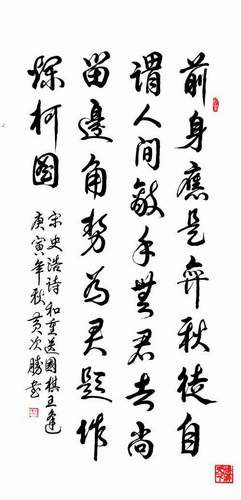 前身應是弈秋徒自
謂人间敵手無君去尚
留邊角势為君題作
爛柯圖
宋史浩詩和重送國棋王逢
庚寅年秋黄次勝书